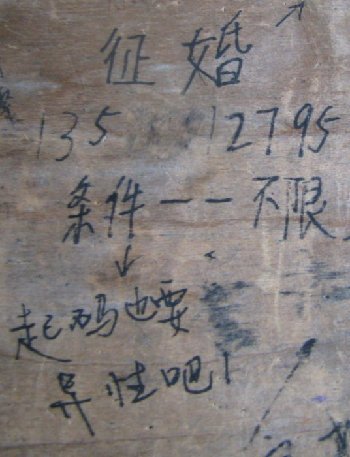 征婚
135 12795
条件——不限
起码也要
异性吧!